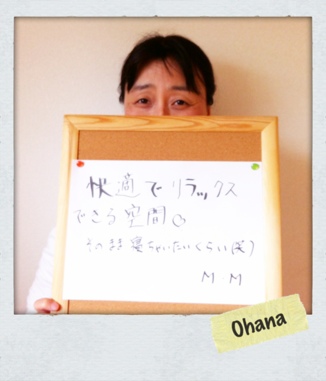 快適でリラックス
できる空間○
そのまま寝ちゃいたいくらい(笑)
M.M
Ohana